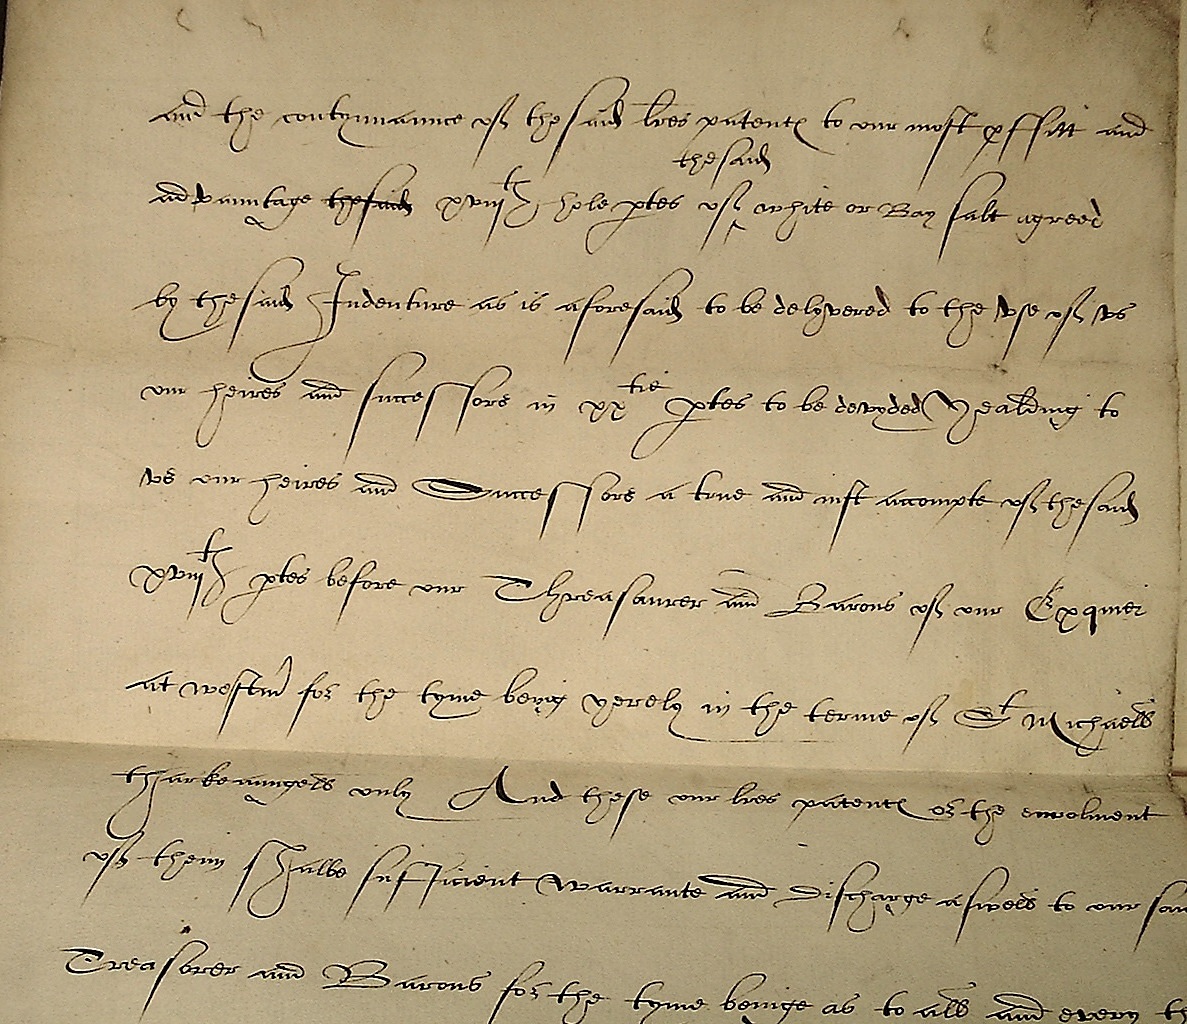 and the contynnaunce of thesaid lres patent to our most pffitt and
thesaid
advauntage thesaid xviijth hole ptes of white or Bay salt agreed
by thesaid Indenture as is aforesaid to be delyvered to the vse of vs
our heires and successors in xxtie ptes to be devyded Yealding to
vs our heires and Successors a true and iust accompte of thesaid
xviijth ptes before our Threasaurer and Barons of our Exquier
at westm for the tyme beyng yerely in the terme of St Michaell
tharkeaungell only And these our lres patent or the enrolment
of them shalbe sufficient warrante and discharge aswell to our sai
Treasorer and Barons for the tyme beinge as to all and every th